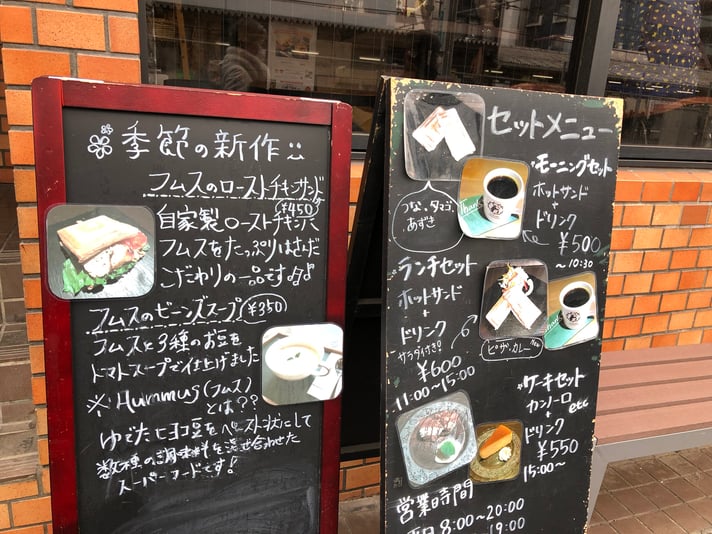 季節の新作
フムスのローストチキンサンド
¥450
自家製ローストチキンに
フムスをたっぷりはさんだ
こだわりの一品です
フムスのビーンズスープ ¥350
フムスと3種のお豆を
トマトスープで仕上げました
※Hummus(フムス)
とは??
ゆでたヒヨコ豆をペースト状にして
数種の調味料を混ぜ合わせた
スーパーフードです!
セットメニュー
モーニングセット
ホットサンド
+
ドリンク
¥500
~10:30
つな、タマゴ、
あずき
ランチセット
ホットサンド
+
ドリンク
サラダ付き!
¥600
11:00~15:00
ピザ、カレー
ケーキセット
カンノーロ
etc
+
ドリンク
¥550
15:00~
営業時間
平日 8:00~20:00
19:00